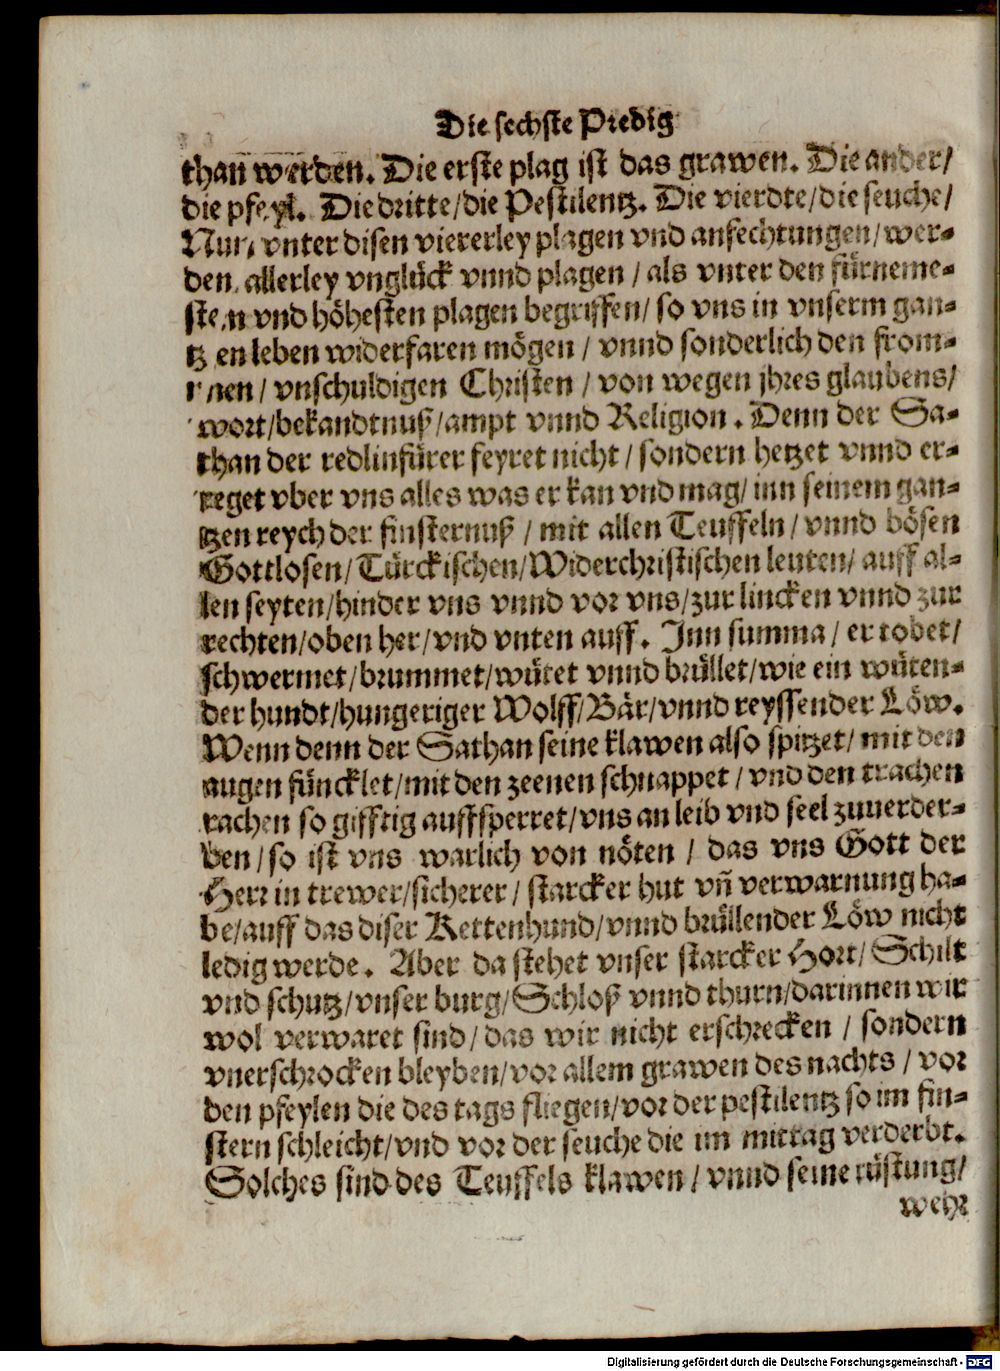 Die sechste Predig
than werden. Die erste plag ist das grawen. Die ander/
die pfeyl. Die dritte/die Pestilentz. Die vierdte/die seuche/
Nun vnter disen viererley plagen vnd anfechtungen/wer-
den allerley vnglück vnnd plagen / als vnter den fürneme-
sten vnd höhesten plagen begriffen/ so vns in vnserm gan-
tzen leben widerfaren mögen / vnnd sonderlich den from-
men / vnschuldigen Christen / von wegen jhres glaubens/
wort/bekandtnuß/ampt vnnd Religion. Denn der Sa-
than der redlinfürer feyret nicht / sondern hetzet vnnd er-
reget vber vns alles was er kan vnd mag/ inn seinem gan-
tzen reych der finsternuß / mit allen Teuffeln/ vnnd bösen
Gottlosen/ Türckischen/Widerchristischen leuten/ auff al-
len seyten/hinder vns vnnd vor vns/zur lincken vnnd zur
rechten/oben her/vnd vnten auff. Inn summa / er tobet/
schwermet/brummet/wütet vnnd brüllet/wie ein wüten-
der hundt/hungeriger Wolff/Bär/vnnd reyssender Löw.
Wenn denn der Sathan seine klawen also spitzet/ mit den
augen füncklet/mit den zeenen schnappet / vnd den trachen
rachen so gifftig auffsperret/vns an leib vnd seel zuuerder-
ben / so ist vns warlich von nöten / das vns Gott der
Herr in trewer/sicherer / starcker hut vñ verwarnung ha-
be/auff das diser Kettenhund/vnnd brüllender Löw nicht
ledig werde. Aber da stehet vnser starcker Hort/ Schilt
vnd schutz/vnser burg/Schloß vnnd thurn/darinnen wir
wol verwaret sind / das wir nicht erschrecken / sondern
vnerschrocken bleyben/vor allem grawen des nachts / vor
den pfeylen die des tags fliegen/vor der pestilentz so im fin-
stern schleicht/vnd vor der seuche die im mittag verderbt.
Solches sind des Teuffels klawen / vnnd seine rüstung/
wehr
Digitalisierung gefördert durch die Deutsche Forschungsgemeinschaft - DFG